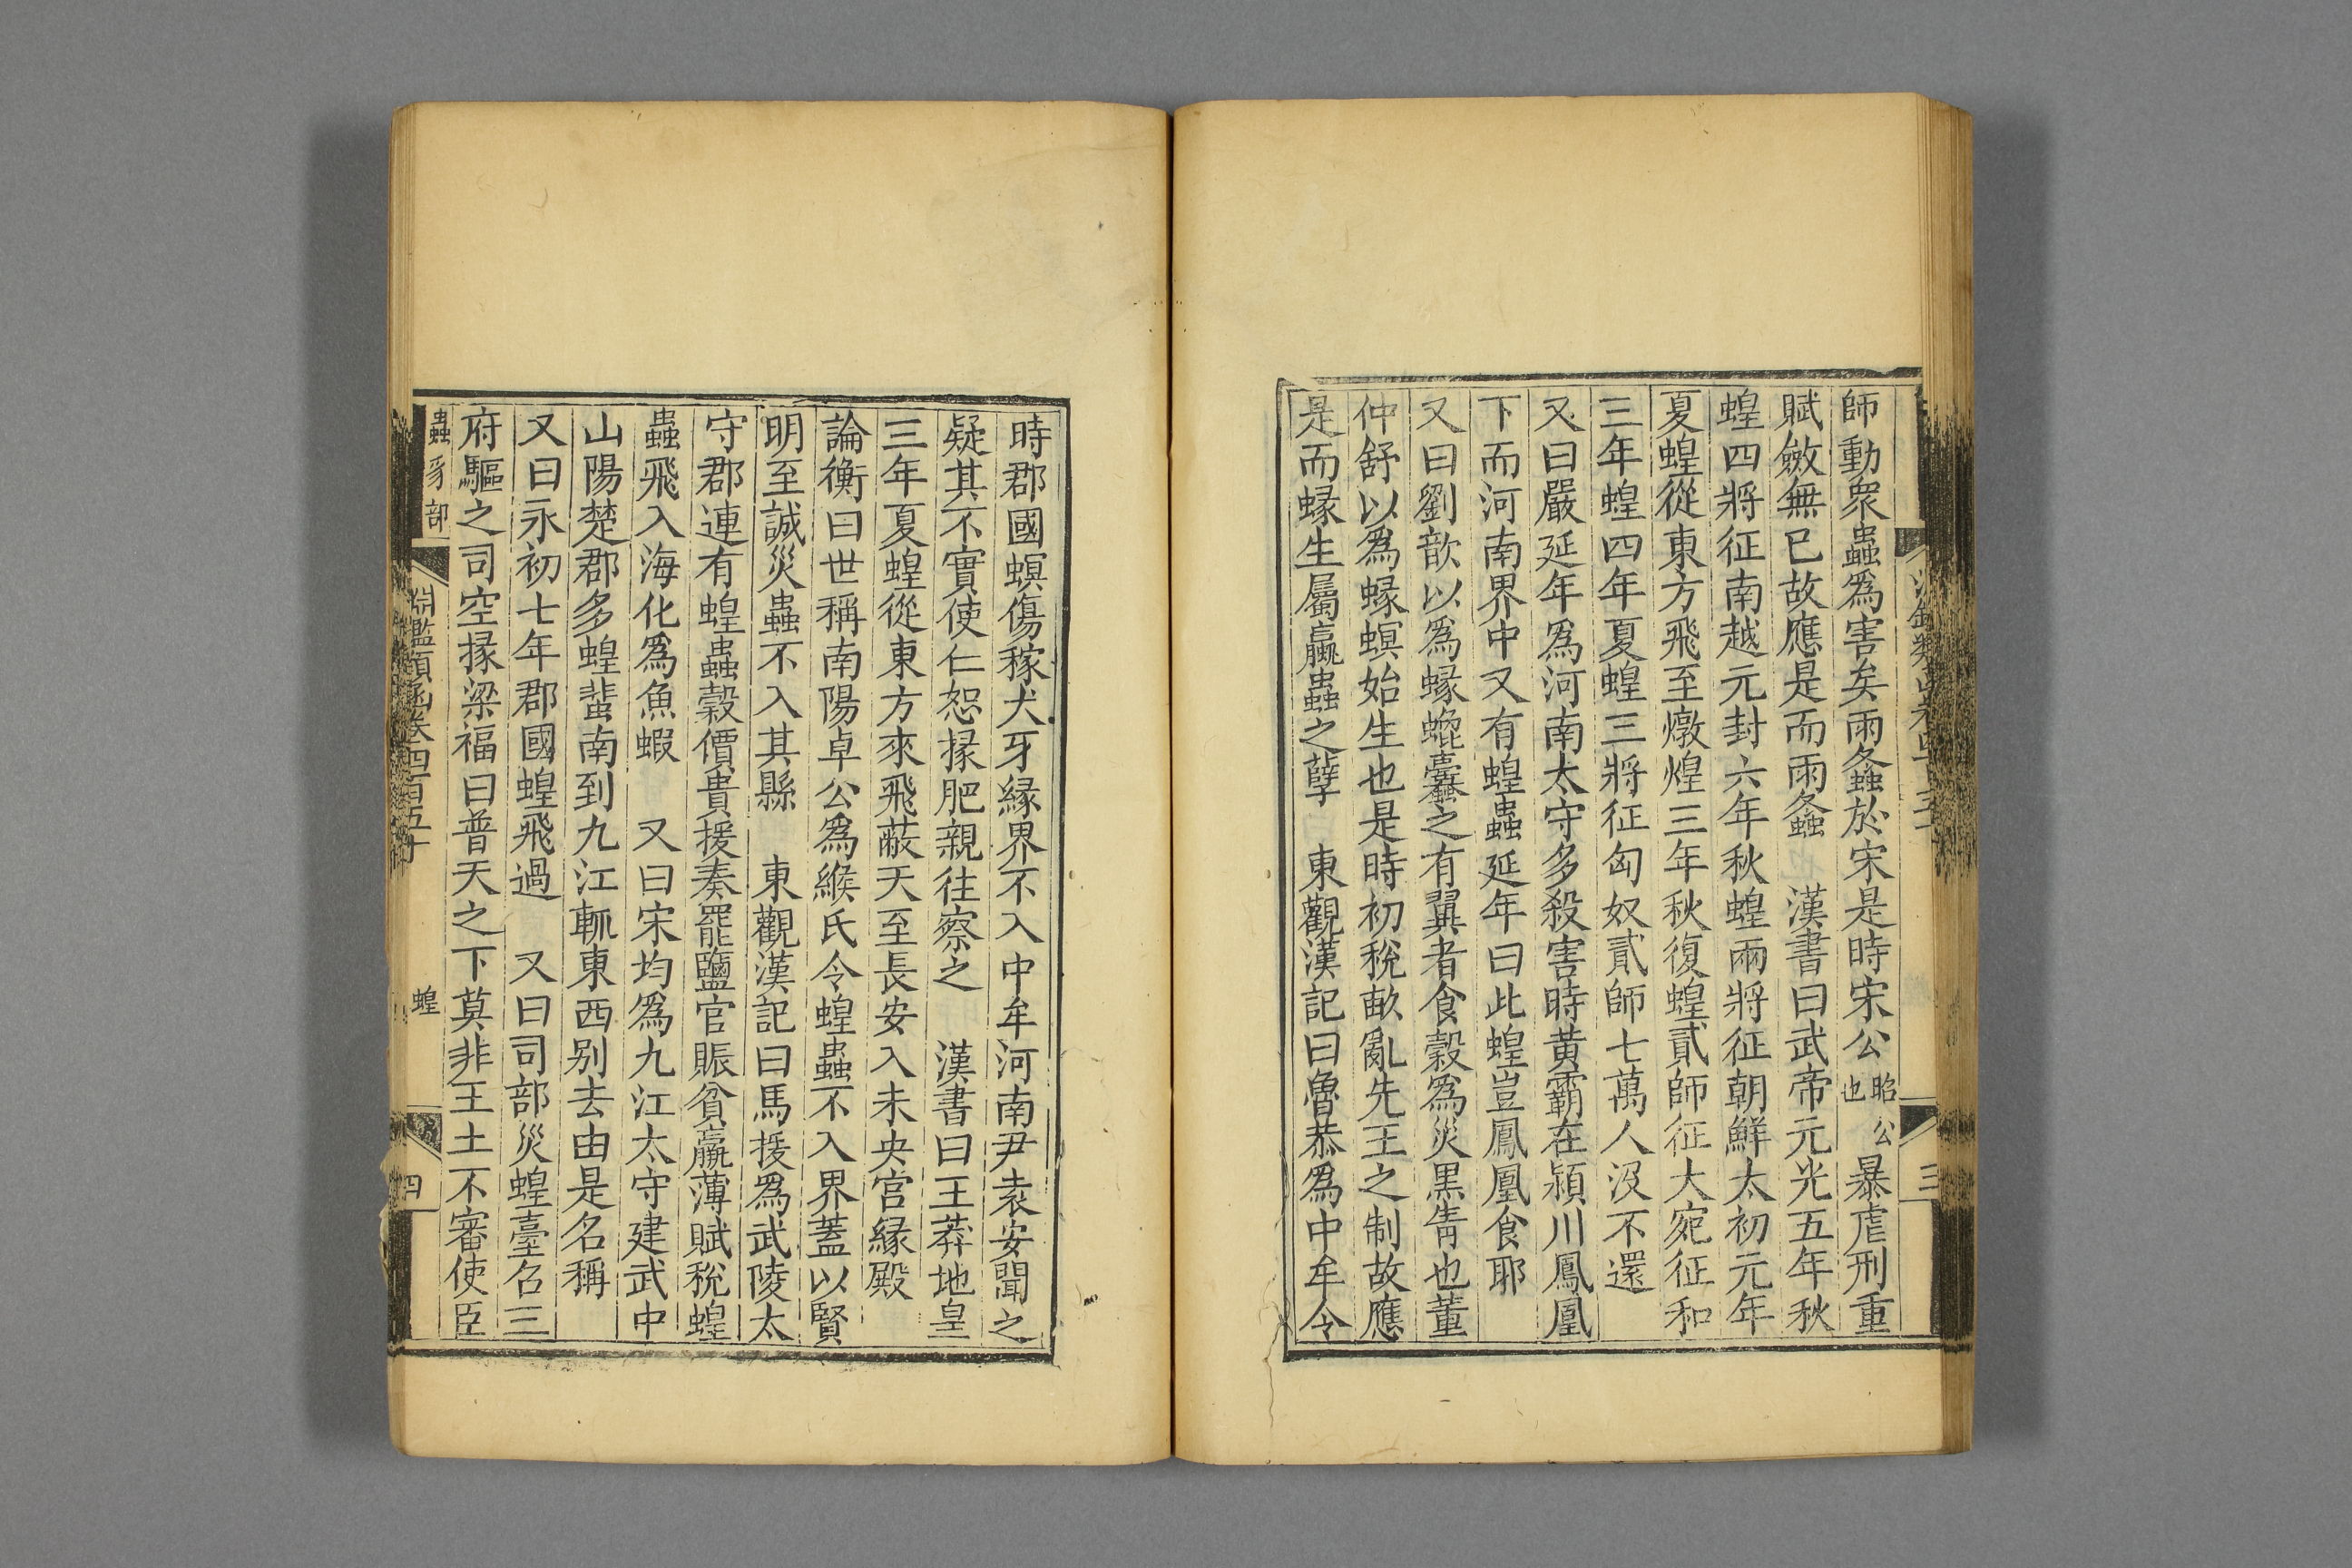 師動衆蟲爲害矣雨螽於宋是時宋公昭公也暴虐刑重
賦斂無已故應是而雨螽　漢書曰武帝元光五年秋
蝗四將征南越元封六年秋蝗兩將征朝鮮太初元年
夏蝗從東方飛至燉煌三年秋復蝗貳師征大宛征和
三年蝗四年夏蝗三將征匈奴貳師七萬人沒不還
又曰嚴延年爲河南太守多殺害時黃霸在潁川鳳凰
下而河南界中又有蝗蟲延年曰此蝗豈鳳凰食耶
又曰劉歆以爲蝝螕蠹之有翼者食穀爲災黑眚也董
仲舒以爲蝝螟始生也是時初稅畝亂先王之制故應
是而蝝生屬蠃蟲之孽　東觀漢記曰魯恭爲中牟令
時郡國螟傷稼犬牙緣界不入中牟河南尹袁安聞之
疑其不實使仁恕掾肥親往察之　漢書曰王莽地皇
三年夏蝗從東方來飛蔽天至長安入未央宮緣殿
論衡曰世稱南陽卓公爲緱氏令蝗蟲不入界蓋以賢
明至誠災蟲不入其縣　東觀漢記曰馬援爲武陵太
守郡連有蝗蟲穀價貴援奏罷鹽官賑貧羸薄賦稅蝗
蟲飛入海化爲魚蝦　又曰宋均爲九江太守建武中
山陽楚郡多蝗蜚南到九江輒東西別去由是名稱
又曰永初七年郡國蝗飛過　又曰司部災蝗臺召三
府驅之司空掾梁福曰普天之下莫非王土不審使臣
蟲豸部　淵鑑類函卷四百五十　蝗　四